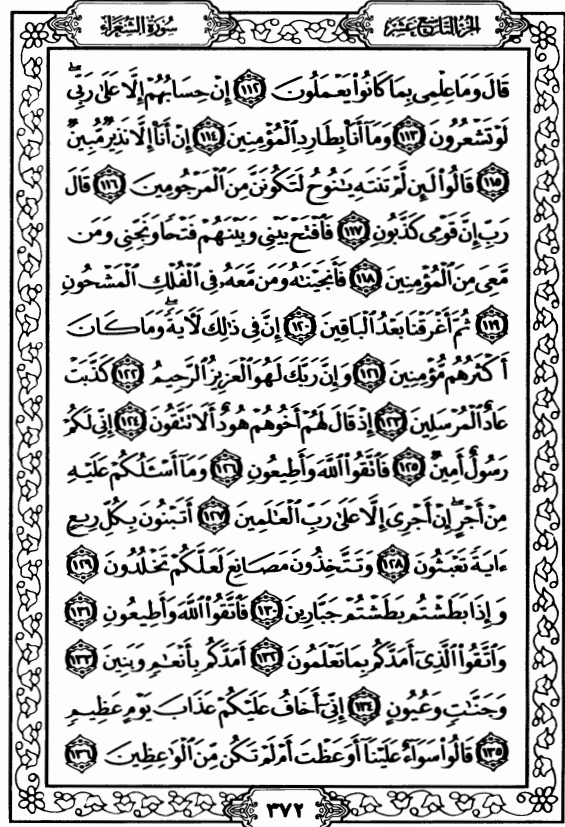 سُورَةُ الشُّعَرَاءِ
الجُزْءُ التَّاسِعَ عَشَرَ
قَالَ وَمَا عِلْمِى بِمَا كَانُوا۟ يَعْمَلُونَ ﴿١١٢﴾ إِنْ حِسَابُهُمْ إِلَّا عَلَىٰ رَبِّى ۖ
لَوْ تَشْعُرُونَ ﴿١١٣﴾ وَمَآ أَنَا۠ بِطَارِدِ ٱلْمُؤْمِنِينَ ﴿١١٤﴾ إِنْ أَنَا۠ إِلَّا نَذِيرٌ مُّبِينٌ
﴿١١٥﴾ قَالُوا۟ لَئِن لَّمْ تَنتَهِ يَـٰنُوحُ لَتَكُونَنَّ مِنَ ٱلْمَرْجُومِينَ ﴿١١٦﴾ قَالَ
رَبِّ إِنَّ قَوْمِى كَذَّبُونِ ﴿١١٧﴾ فَٱفْتَحْ بَيْنِى وَبَيْنَهُمْ فَتْحًا وَنَجِّنِى وَمَن
مَّعِىَ مِنَ ٱلْمُؤْمِنِينَ ﴿١١٨﴾ فَأَنجَيْنَـٰهُ وَمَن مَّعَهُۥ فِى ٱلْفُلْكِ ٱلْمَشْحُونِ
﴿١١٩﴾ ثُمَّ أَغْرَقْنَا بَعْدُ ٱلْبَاقِينَ ﴿١٢٠﴾ إِنَّ فِى ذَٰلِكَ لَـَٔايَةً ۖ وَمَا كَانَ
أَكْثَرُهُم مُّؤْمِنِينَ ﴿١٢١﴾ وَإِنَّ رَبَّكَ لَهُوَ ٱلْعَزِيزُ ٱلرَّحِيمُ ﴿١٢٢﴾ كَذَّبَتْ
عَادٌ ٱلْمُرْسَلِينَ ﴿١٢٣﴾ إِذْ قَالَ لَهُمْ أَخُوهُمْ هُودٌ أَلَا تَتَّقُونَ ﴿١٢٤﴾ إِنِّى لَكُمْ
رَسُولٌ أَمِينٌ ﴿١٢٥﴾ فَٱتَّقُوا۟ ٱللَّهَ وَأَطِيعُونِ ﴿١٢٦﴾ وَمَآ أَسْـَٔلُكُمْ عَلَيْهِ
مِنْ أَجْرٍ ۖ إِنْ أَجْرِىَ إِلَّا عَلَىٰ رَبِّ ٱلْعَـٰلَمِينَ ﴿١٢٧﴾ أَتَبْنُونَ بِكُلِّ رِيعٍ
ءَايَةً تَعْبَثُونَ ﴿١٢٨﴾ وَتَتَّخِذُونَ مَصَانِعَ لَعَلَّكُمْ تَخْلُدُونَ ﴿١٢٩﴾
وَإِذَا بَطَشْتُم بَطَشْتُمْ جَبَّارِينَ ﴿١٣٠﴾ فَٱتَّقُوا۟ ٱللَّهَ وَأَطِيعُونِ ﴿١٣١﴾
وَٱتَّقُوا۟ ٱلَّذِىٓ أَمَدَّكُم بِمَا تَعْلَمُونَ ﴿١٣٢﴾ أَمَدَّكُم بِأَنْعَـٰمٍ وَبَنِينَ ﴿١٣٣﴾
وَجَنَّـٰتٍ وَعُيُونٍ ﴿١٣٤﴾ إِنِّىٓ أَخَافُ عَلَيْكُمْ عَذَابَ يَوْمٍ عَظِيمٍ
﴿١٣٥﴾ قَالُوا۟ سَوَآءٌ عَلَيْنَآ أَوَعَظْتَ أَمْ لَمْ تَكُن مِّنَ ٱلْوَٰعِظِينَ ﴿١٣٦﴾
٣٧٢